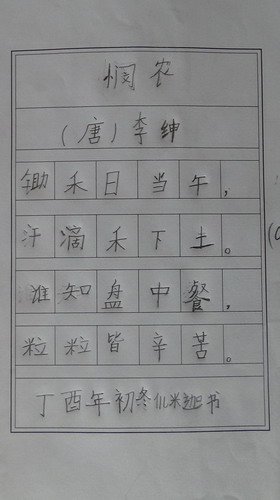 悯农
(唐)李绅
锄禾日当午,
汗滴禾下土。
谁知盘中餐,
粒粒皆辛苦。
丁酉年初冬 书